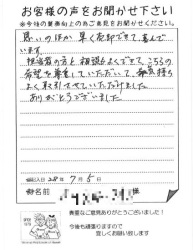 お客様の声をお聞かせ下さい
※今後の業務向上の為ご意見をお聞かせください。
思いのほか早く売却できて、喜んで
います。
担当者の方と相談よくできて、こちらの
希望を尊重していただいて、気持ち
よく取引させていただきました。
ありがとうございました
28年7月5日
お名前
様
貴重なご意見ありがとうございました!
今後も頑張りますので
宜しくお願い致します